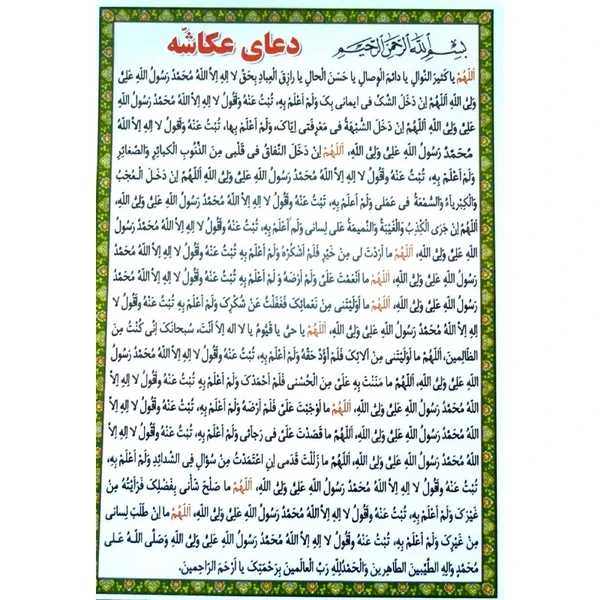 بِسْمِ اللهِ الرَّحْمنِ الرَّحیمِ
دعای عکاشّه
اَللّهُمَّ یا کَثیرَ النَّوالِ یا دائِمَ الْوِصالِ یا حَسَنَ الْحالِ یا رازِقَ الْعِبادِ بِحَقِّ لا اِلهَ اِلاَّ اللهُ مُحَمَّدٌ رَسُولُ اللهِ عَلِیٌّ
وَلِیُّ اللهِ اَللّهُمَّ اِنْ دَخَلَ الشَّکُّ فی ایمانی بِکَ وَلَمْ اَعْلَمْ بِهِ، تُبْتُ عَنْهُ وَاَقُولُ لا اِلهَ اِلاَّ اللهُ مُحَمَّدٌ رَسُولُ اللهِ
عَلِیٌّ وَلِیُّ اللهِ اَللّهُمَّ اِنْ دَخَلَ الشُّبْهَةُ فی مَعْرِفَتی اِیّاکَ، وَلَمْ اَعْلَمْ بِها، تُبْتُ عَنْهُ وَاَقُولُ لا اِلهَ اِلاَّ اللهُ
مُحَمَّدٌ رَسُولُ اللهِ عَلِیٌّ وَلِیُّ اللهِ، اَللّهُمَّ اِنْ دَخَلَ النِّفاقُ فی قَلْبی مِنَ الذُّنُوبِ الْکَبائِرِ وَالصَّغائِرِ
وَلَمْ اَعْلَمْ بِهِ، تُبْتُ عَنْهُ وَاَقُولُ لا اِلهَ اِلاَّ اللهُ مُحَمَّدٌ رَسُولُ اللهِ عَلِیٌّ وَلِیُّ اللهِ اَللّهُمَّ اِنْ دَخَلَ الْعُجْبُ
وَالْکِبْرِیاءُ وَالسُّمْعَةُ فی عَمَلی وَلَمْ اَعْلَمْ بِهِ، تُبْتُ عَنْهُ وَاَقُولُ لا اِلهَ اِلاَّ اللهُ مُحَمَّدٌ رَسُولُ اللهِ عَلِیٌّ وَلِیُّ اللهِ
اَللّهُمَّ اِنْ جَرَی الْکِذْبُ وَالْغَیْبَةُ وَالنَّمیمَةُ عَلی لِسانی وَلَمْ اَعْلَمْ بِهِ، تُبْتُ عَنْهُ وَاَقُولُ لا اِلهَ اِلاَّ اللهُ مُحَمَّدٌ رَسُولُ
اللهِ عَلِیٌّ وَلِیُّ اللهِ، اَللّهُمَّ ما اَرَدْتَ لی مِنْ خَیْرٍ فَلَمْ اَشْکُرْهُ وَلَمْ اَعْلَمْ بِهِ تُبْتُ عَنْهُ وَاَقُولُ لا اِلهَ اِلاَّ اللهُ مُحَمَّدٌ
رَسُولُ اللهِ عَلِیٌّ وَلِیُّ اللهِ، اَللّهُمَّ ما اَنْعَمْتَ عَلَیَّ وَلَمْ اَرْضَهُ وَ لَمْ اَعْلَمْ بِهِ تُبْتُ عَنْهُ وَاَقُولُ لا اِلهَ اِلاَّ اللهُ مُحَمَّدٌ
رَسُولُ اللهِ عَلِیٌّ وَلِیُّ اللهِ، اَللّهُمَّ ما اَوْلَیْتَنی مِنْ نَعْمائِکَ فَغَفَلْتُ عَنْ شُکْرِکَ وَلَمْ اَعْلَمْ بِهِ، تُبْتُ عَنْهُ وَ اَقُولُ لا
اِلهَ اِلاَّ اللهُ مُحَمَّدٌ رَسُولُ اللهِ عَلِیٌّ وَلِیُّ اللهِ، اَللّهُمَّ یا حَیُّ یا قَیُّومُ یا لا اله اِلاّ اَنْتَ، سُبحانَکَ اِنّی کُنْتُ مِنَ
الظّالِمینَ، اَللّهُمَّ ما اَوْلَیْتَنی مِنْ آلائِکَ فَلَمْ اُؤَدِّ حَقَّهُ وَلَمْ اَعْلَمْ بِهِ، تُبْتُ عَنْهُ وَاَقُولُ لا اِلهَ اِلاَّ اللهُ مُحَمَّدٌ رَسُولُ
اللهِ عَلِیٌّ وَلِیُّ اللهِ، اَللّهُمَّ ما مَنَنْتَ بِهِ عَلَیَّ مِنَ الْحُسْنی فَلَمْ اَحْمَدْکَ وَلَمْ اَعْلَمْ بِهِ، تُبْتُ عَنْهُ وَاَقُولُ لا اِلهَ اِلاَّ
اللهُ مُحَمَّدٌ رَسُولُ اللهِ عَلِیٌّ وَلِیُّ اللهِ، اَللّهُمَّ ما اَوْجَبْتَ عَلَیَّ فَلَمْ اَرْضَهُ وَلَمْ اَعْلَمْ بِهِ، تُبْتُ عَنْهُ وَاَقُولُ لا اِلهَ اِلاَّ
اللهُ مُحَمَّدٌ رَسُولُ اللهِ عَلِیٌّ وَلِیُّ اللهِ، اَللّهُمَّ ما قَصَدْتَ عَلَیَّ فی رَجائی وَلَمْ اَعْلَمْ بِهِ، تُبْتُ عَنْهُ وَاَقُولُ لا اِلهَ اِلاَّ
اللهُ مُحَمَّدٌ رَسُولُ اللهِ عَلِیٌّ وَلِیُّ اللهِ، اَللّهُمَّ ما زَلَلْتَ قَدَمی اِنِ اعْتَمَدْتُ مِنْ سُؤالٍ فِی الشَّدائِدِ وَلَمْ اَعْلَمْ بِهِ،
تُبْتُ عَنْهُ وَاَقُولُ لا اِلهَ اِلاَّ اللهُ مُحَمَّدٌ رَسُولُ اللهِ عَلِیٌّ وَلِیُّ اللهِ، اَللّهُمَّ ما صَلَحَ شَأْنی بِفَضْلِکَ فَرَأَیْتُهُ مِنْ
غَیْرِکَ وَلَمْ اَعْلَمْ بِهِ، تُبْتُ عَنْهُ وَاَقُولُ لا اِلهَ اِلاَّ اللهُ مُحَمَّدٌ رَسُولُ اللهِ عَلِیٌّ وَلِیُّ اللهِ، اَللّهُمَّ ما اِنْ طَلَبَ لِسانی
مِنْ غَیْرِکَ وَلَمْ اَعْلَمْ بِهِ، تُبْتُ عَنْهُ وَاَقُولُ لا اِلهَ اِلاَّ اللهُ مُحَمَّدٌ رَسُولُ اللهِ عَلِیٌّ وَلِیُّ اللهِ وَصَلَّی اللهُ عَلی
مُحَمَّدٍ وَالِهِ الطَّیِّبینَ الطّاهِرینَ وَالْحَمْدُلِلّهِ رَبِّ الْعالَمینَ بِرَحْمَتِکَ یا اَرْحَمَ الرّاحِمینَ.